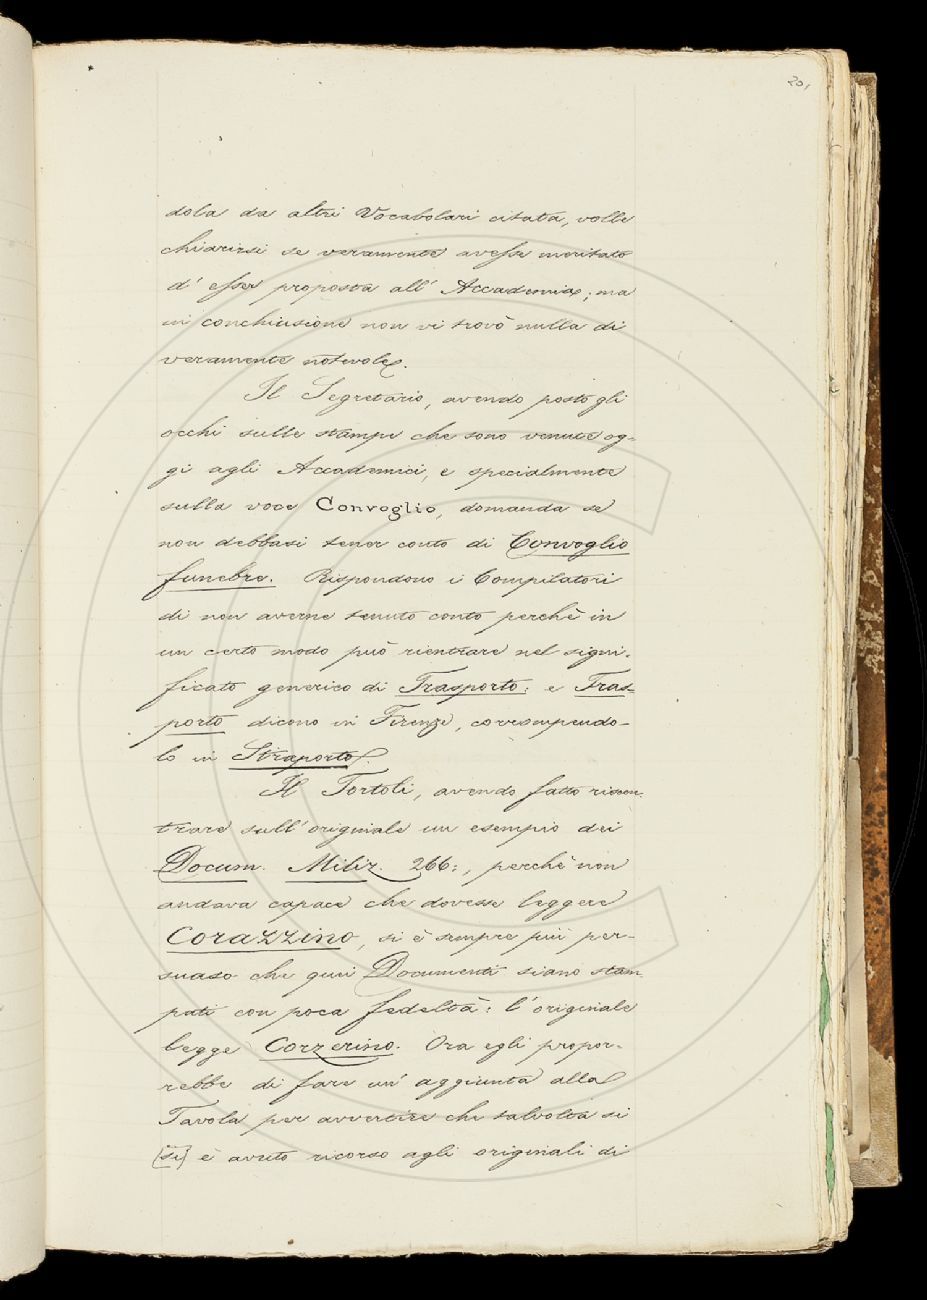 201
dola da altri Vocabolari citata, volle
chiarirsi se veramente avesse meritato
d'esser proposta all'Accademia; ma
in conchiusione non vi trovò nulla di
veramente notevole.
Il Segretario, avendo posto gli
occhi sulle stampe che sono venute og-
gi agli Accademici, e specialmente
sulla voce Convoglio, domanda se
non debbasi tener conto di Convoglio
funebre. Rispondono i Compilatori
di non averne tenuto conto perchè in
un certo modo può rientrare nel signi-
ficato generico di Trasporto: e Tras-
porto dicono in Firenze, corrompendo-
lo in Straporto.
Il Tortoli, avendo fatto riscon-
trare sull'originale un esempio dei
Docum. Miliz. 266:, perchè non
andava capace che dovesse leggere
Corazzino, si è sempre più per-
suaso che quei Documenti siano stam
pati con poca fedeltà: l'originale
legge Corzerino. Ora egli propor-
rebbe di fare un'aggiunta alla
Tavola per avvertire che talvolta si
[si] è avuto ricorso agli originali di